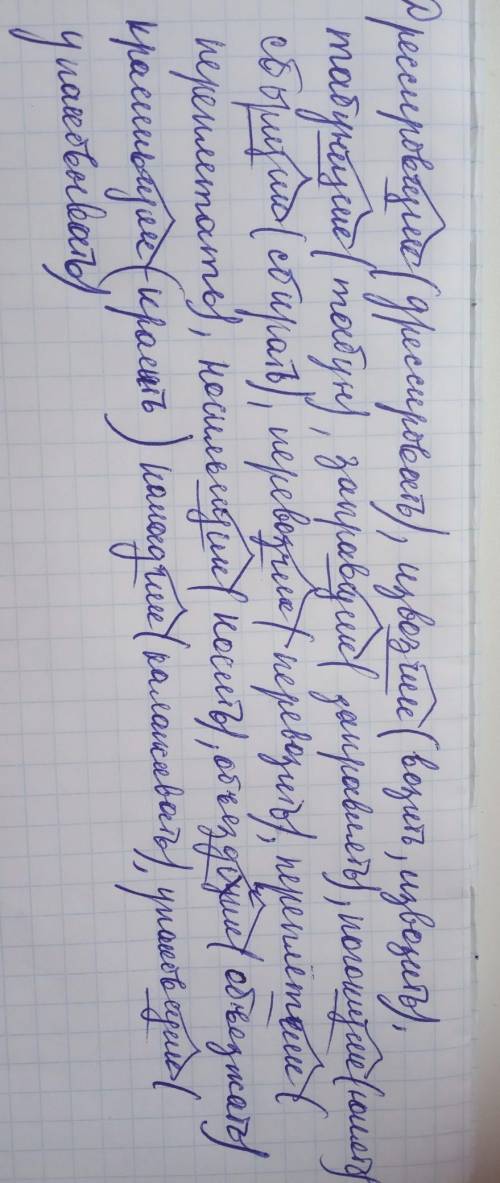 Дрессировщик (дрессировать), извозчик (возить, извозить),
табунщик (табун), заправщик (заправлять), погонщик (гонять)
сборщик (сбирать), перевозчик (перевозить), переплётчик (
переплетать), носильщик (носить), объездчик (объезжать)
красильщик (красить) наладчик (налаживать), упаковщик (
упаковывать)